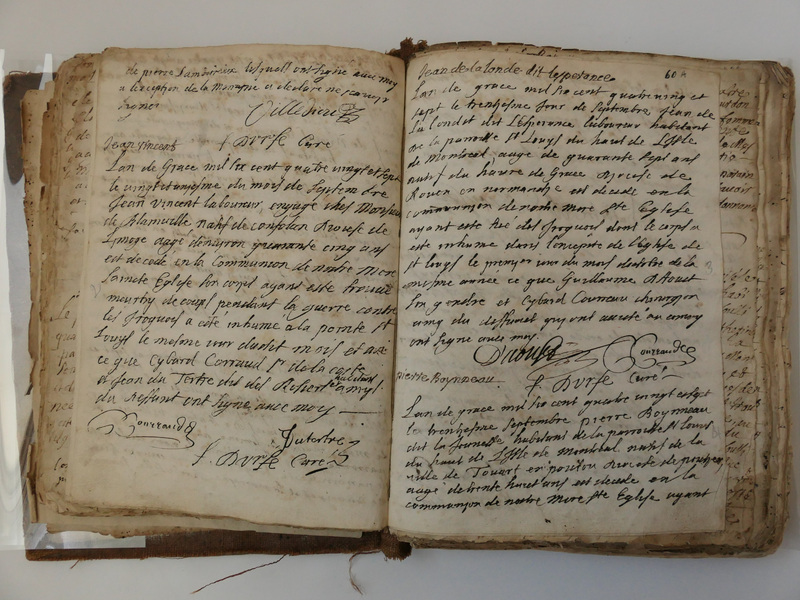 de pierre Lamoureux lesquels ont signe avec moy
a lexception de la qui a declare ne scavoir
signer
Villeneuve
f Durse Cure
Jean vincent
Lan de Grace mil six cent quatre vingt et sept
le vingt du mois de Septembre
Jean Vincent laboureur engagé chez Monsieur
de Blainville natif de diocese de
Limoge aagé denviron quarante cinq ans
est decedé en la Communion de nostre Mere
Saincte Eglise son corps ayant esté trouvé
meurtry de coups pendant la guerre contre
les Iroquois a esté inhumé a la pointe St
Louys le mesme iour dudit mois et an
ce que Cybard Corraud Sr de la coste
et Jean du Tertre habitant amys
du deffunt ont signe avec moy
Courraud
Dutertre
f Durse Cure
60
Jean de la londe dit lesperance
Lan de grace mil six cent quatre vingt et
sept le trentiesme Jour de Septembre Jean de
la londe dit Lesperance laboureur habitant
de la parroisse St Louys du haut de Lisle
de Montreal aagé de quarante sept ans
natif du havre de Grace diocese de
Rouen en normandie est decede en la
communion de nostre Mere Ste Eglise
ayant esté tué des Iroquois dont le corps a
esté inhumé dans lenceinte de leglise de
St louys le premier iour du mois doctobre de la
mesme année ce que Guillaume
son gendre et Cybard Courraud chirurgien
amy du deffunct qui ont assisté au convoy
ont signe avec moy
Courraud
f Durse Curé
pierre Boynneau
Lan de grace mil six cent quatre vingt et sept
le trentiesme Septembre pierre Boynneau
dit la Jeunesse habitant de la parroisse St Louys
du haut de Lisle de Montreal natif de la
ville de Touart en poitou diocese de poitiers
aagé de trente huict ans est decede en la
communion de nostre Mere Ste Eglise ayant